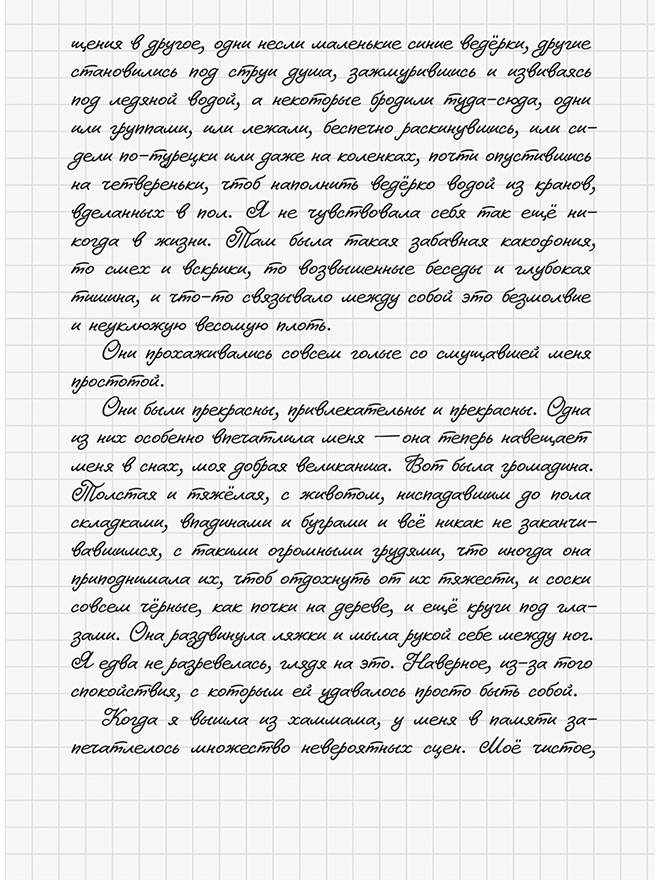 щения в другое, одни несли маленькие синие ведёрки, другие
становились под струи душа, зажмурившись и извиваясь
под ледяной водой, а некоторые бродили туда-сюда, одни
или группами, или лежали, беспечно раскинувшись, или си-
дели по-турецки или даже на коленках, почти опустившись
на четвереньки, чтоб наполнить ведёрко водой из кранов,
вделанных в пол. Я не чувствовала себя так ещё ни-
когда в жизни. Там была такая забавная какофония,
то смех и вскрики, то возвышенные беседы и глубокая
тишина, и что-то связывало между собой это безмолвие
и неуклюжую весомую плоть.
Они прохаживались совсем голые со смущавшей меня
простотой.
Они были прекрасны, привлекательны и прекрасны. Одна
из них особенно впечатлила меня — она теперь навещает
меня в снах, моя добрая великанша. Вот была громадина.
Толстая и тяжёлая, с животом, ниспадавшим до пола
складками, впадинами и буграми и всё никак не заканчи-
вавшимся, с такими огромными грудями, что иногда она
приподнимала их, чтоб отдохнуть от их тяжести, и соски
совсем чёрные, как почки на дереве, и ещё круги под гла-
зами. Она раздвинула ляжки и мыла рукой себе между ног.
Я едва не разревелась, глядя на это. Наверное, из-за того
спокойствия, с которым ей удавалось просто быть собой.
Когда я вышла из хаммама, у меня в памяти за-
печатлелось множество невероятных сцен. Моё чистое,